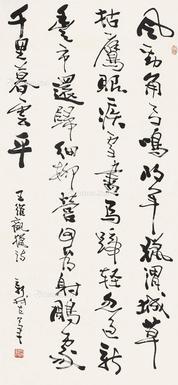 風勁角弓鳴將軍獵渭城草
枯鷹眼疾雪盡馬蹄輕忽過新
豐市還歸細柳營回看射鵰處
千里暮雲平
王維觀獵詩
新我左筆